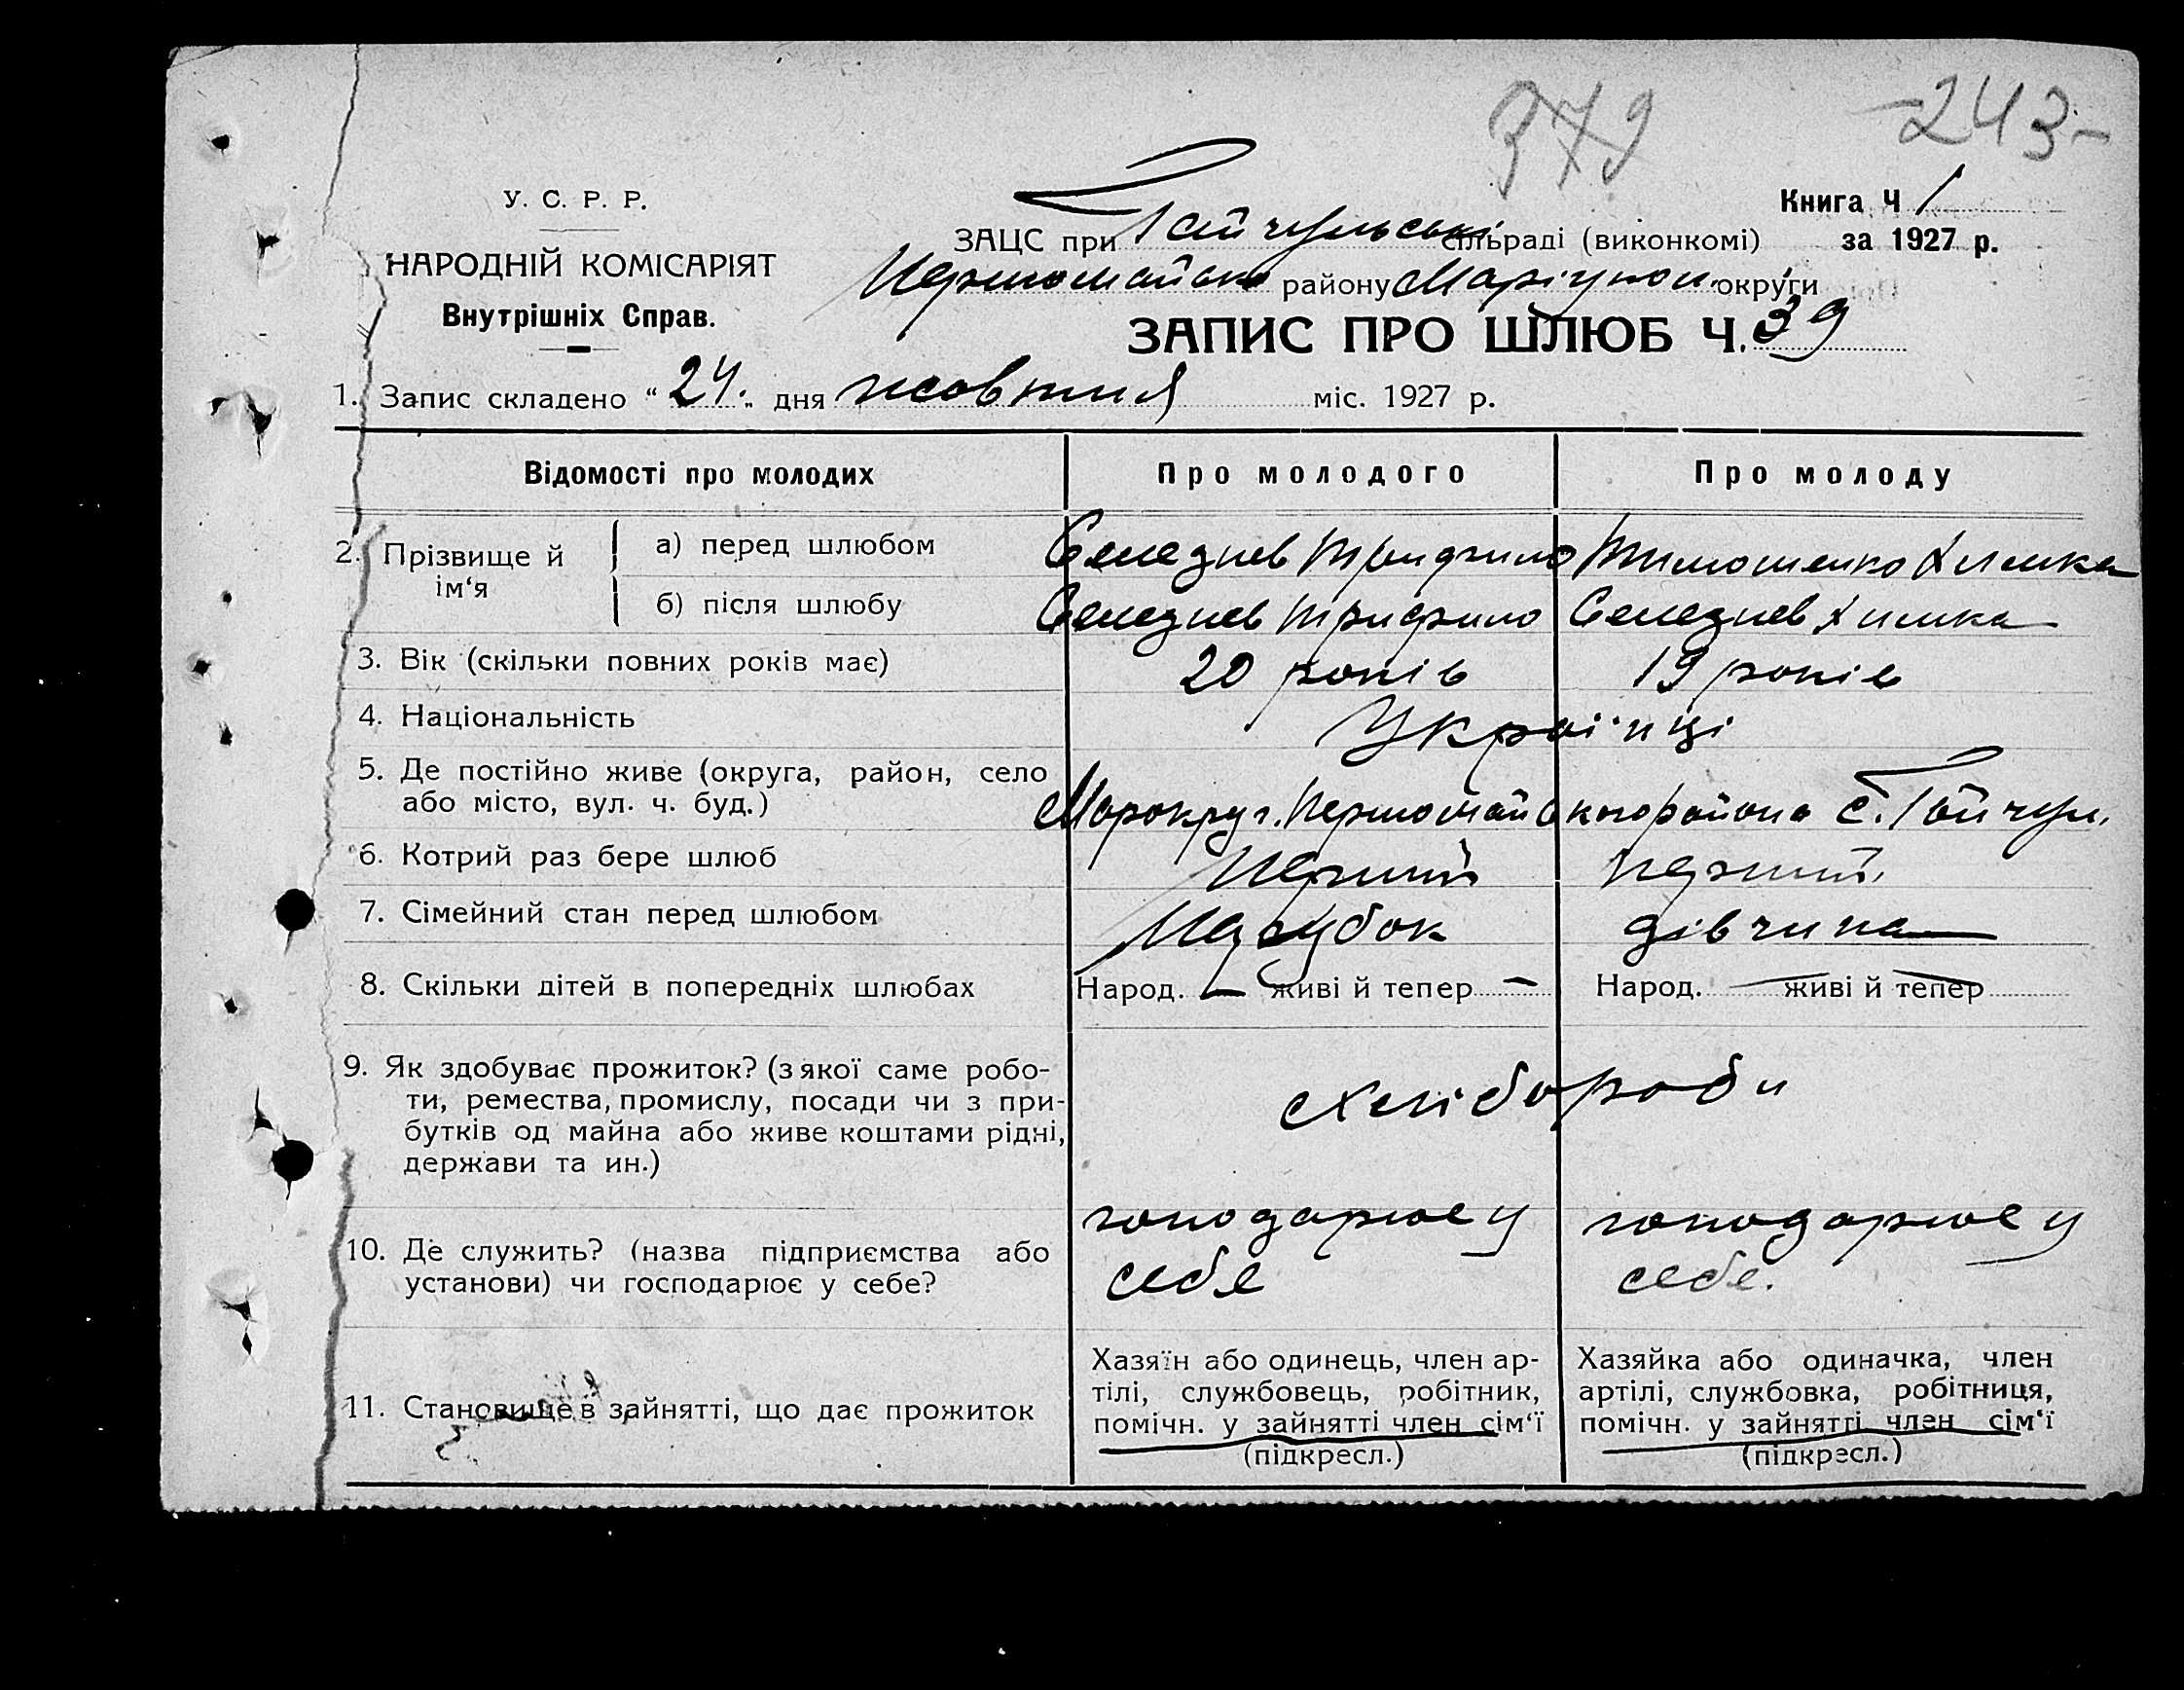 379 -243-
У. С. Р. Р.
НАРОДНІЙ КОМІСАРІЯТ
Внутрішніх Справ.
Книга Ч 1
за 1927 р.
ЗАЦС при Гайчульські сільраді (виконкомі)
Першомайсько району Маріупол. округи
ЗАПИС ПРО ШЛЮБ Ч. 39
1. Запис складено “ 24 „ дня жовтня міс. 1927 р.
Відомості про молодих Про молодого Про молоду
2. Прізвище й ім‘я
а) перед шлюбом Селезнев Трифило Тимошенко Химка
б) після шлюбу Селезнев Трифило Селезнев Химка
3. Вік (скільки повних років має) 20 років 19 років
4. Національність Українці
5. Де постійно живе (округа, район, село
або місто, вул. ч. буд.) Марокруг. Першомайського района с. Гайчул.
6. Котрий раз бере шлюб Перший перший
7. Сімейний стан перед шлюбом Парубок дівчина
8. Скільки дітей в попередніх шлюбах Народ. — живі й тепер — Народ. — живі й тепер —
9. Як здобуває прожиток? (з якої саме робо-
ти, ремества, промислу, посади чи з при-
бутків од майна або живе коштами рідні,
держави та ин.)
хлібороби
10. Де служить? (назва підприємства або
установи) чи господарює у себе?
господарює у
себе
господарює у
себе.
11. Становище в зайнятті, що дає прожиток
Хазяїн або одинець, член ар-
тілі, службовець, робітник,
помічн. у зайнятті член сім‘ї
(підкресл.)
Хазяйка або одиначка, член
артілі, службовка, робітниця,
помічн. у зайнятті член сім‘ї
(підкресл.)